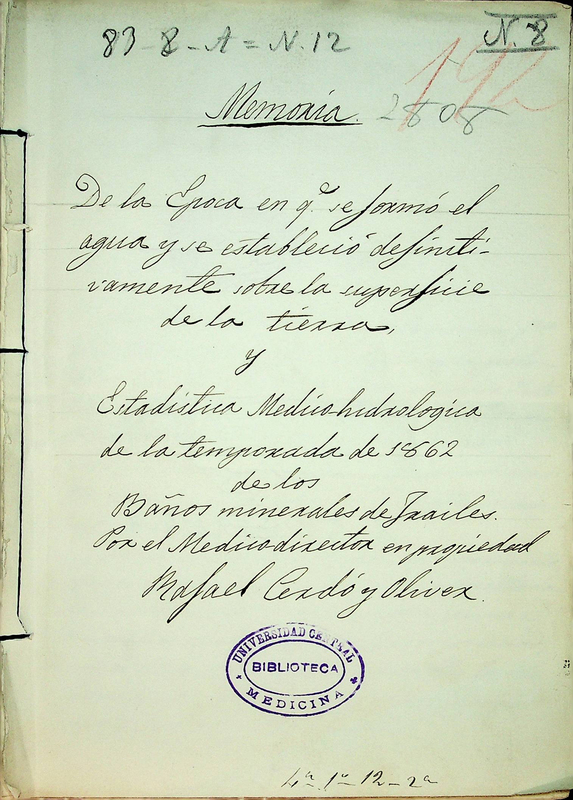 83-8-A=N.12
N. 8
Memoria.
2808
De la Epoca en q.e se formó el
agua y se estableció definiti-
vamente sobre la superficie
de la tierra,
y
Estadistica Medico hidrologica
de la temporada de 1862
de los
Baños minerales de Frailes.
Por el Medico director en propiedad
Rafael Cerdó y Oliver.
UNIVERSIDAD CENTRAL
BIBLIOTECA
MEDICINA